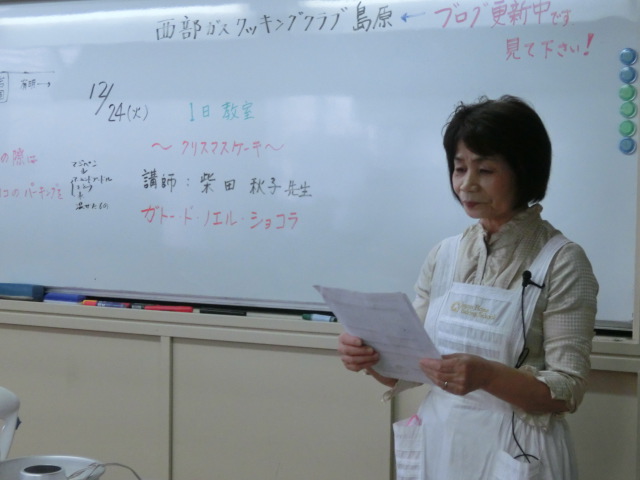 西部ガスクッキングクラブ島原 ← ブログ更新中です。
見て下さい!
12/24(火) 1日教室
～クリスマスケーキ～
講師:柴田 秋子先生
ガトー・ド・ノエル・ショコラ
の際は